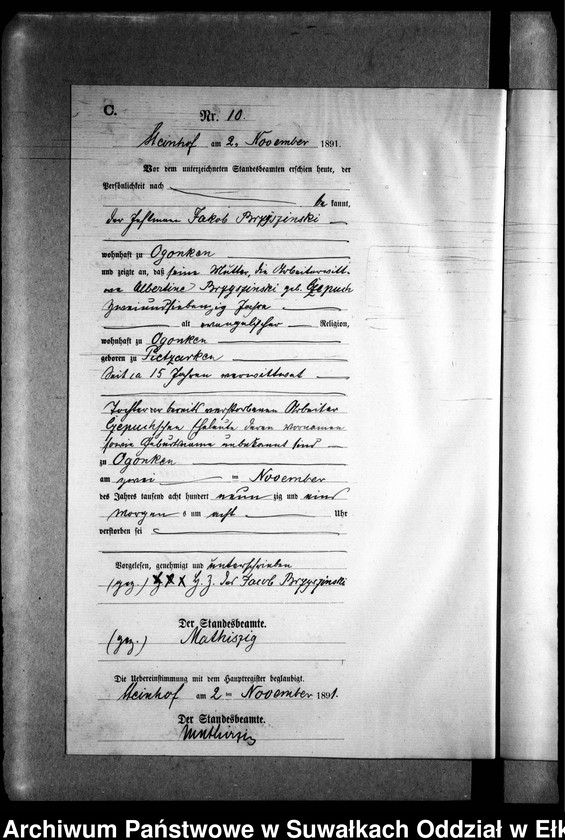 C.
Nr. 10.
Steinhof am 2. November 1891.
Vor dem unterzeichneten Standesbeamten erschien heute, der
Persönlichkeit nach
be kannt,
der Jakob Brzyszinski
wohnhaft zu Ogonken
und zeigte an, daß seine Mutter, die Arbeiterwitt-
we Albertine Brzyszinski geb. Czepuch
zweiundsiebenzig Jahre
alt evangelischer Religion,
wohnhaft zu Ogonken
geboren zu Pietzarken
seit ca 15 Jahren verwittwet
Tochter der bereits verstorbenen Arbeiter
Czepuch'schen Eheleute deren Vornamen
sowie Geburtsname unbekannt sind
zu Ogonken
am zwei ten November
des Jahres tausend acht hundert neun zig und eins
Morgen s um acht Uhr
verstorben sei
Vorgelesen, genehmigt und unterschrieben
(gez.) XXX H. Z. des Jacob Brzyszinski
Der Standesbeamte.
(gez.) Mathiszig
Die Uebereinstimmung mit dem Hauptregister beglaubigt.
Steinhof am 2 ten November 1891.
Der Standesbeamte.
Mathiszig
Archiwum Państwowe w Suwałkach Oddział w Ełk